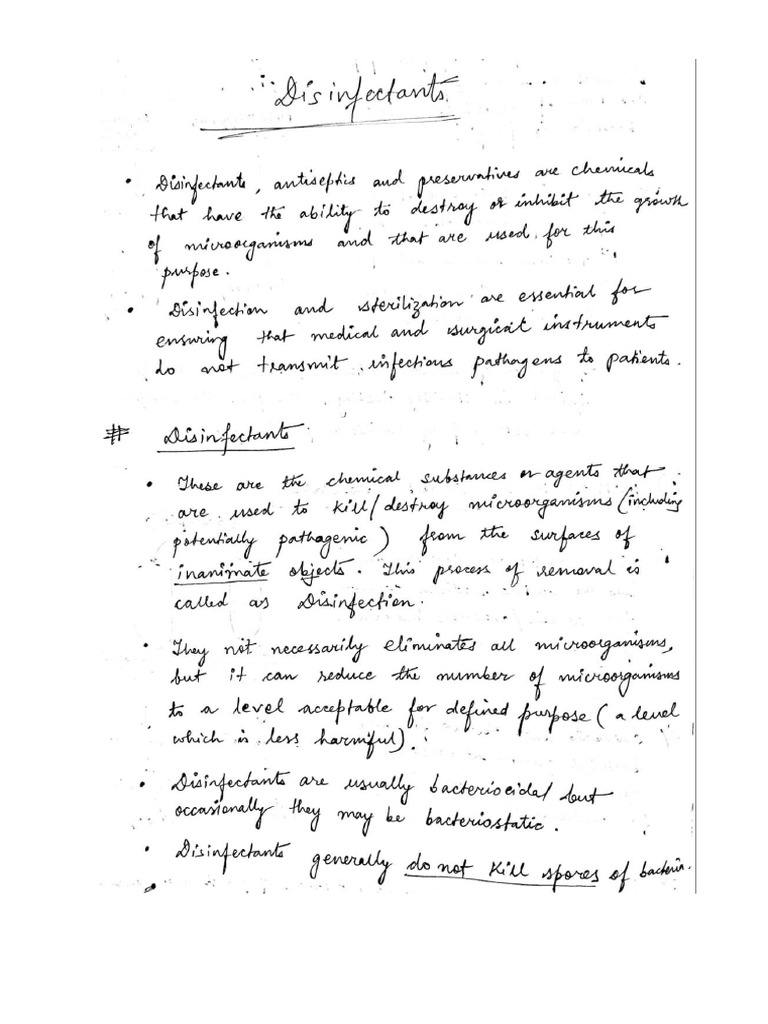 Disinfectants
• Disinfectants, antiseptics and preservatives are chemicals
that have the ability to destroy or inhibit the growth
of microorganisms and that are used for this
purpose.
• Disinfection and sterilization are essential for
ensuring that medical and surgical instruments
do not transmit infectious pathogens to patients.
# Disinfectants
• These are the chemical substances or agents that
are used to kill/destroy microorganisms (including
potentially pathogenic) from the surfaces of
inanimate objects. This process of removal is
called as Disinfection.
• They not necessarily eliminates all microorganisms,
but it can reduce the number of microorganisms
to a level acceptable for defined purpose (a level
which is less harmful).
• Disinfectants are usually bacteriocidal but
occasionally they may be bacteriostatic.
• Disinfectants generally do not kill spores of bacteria.